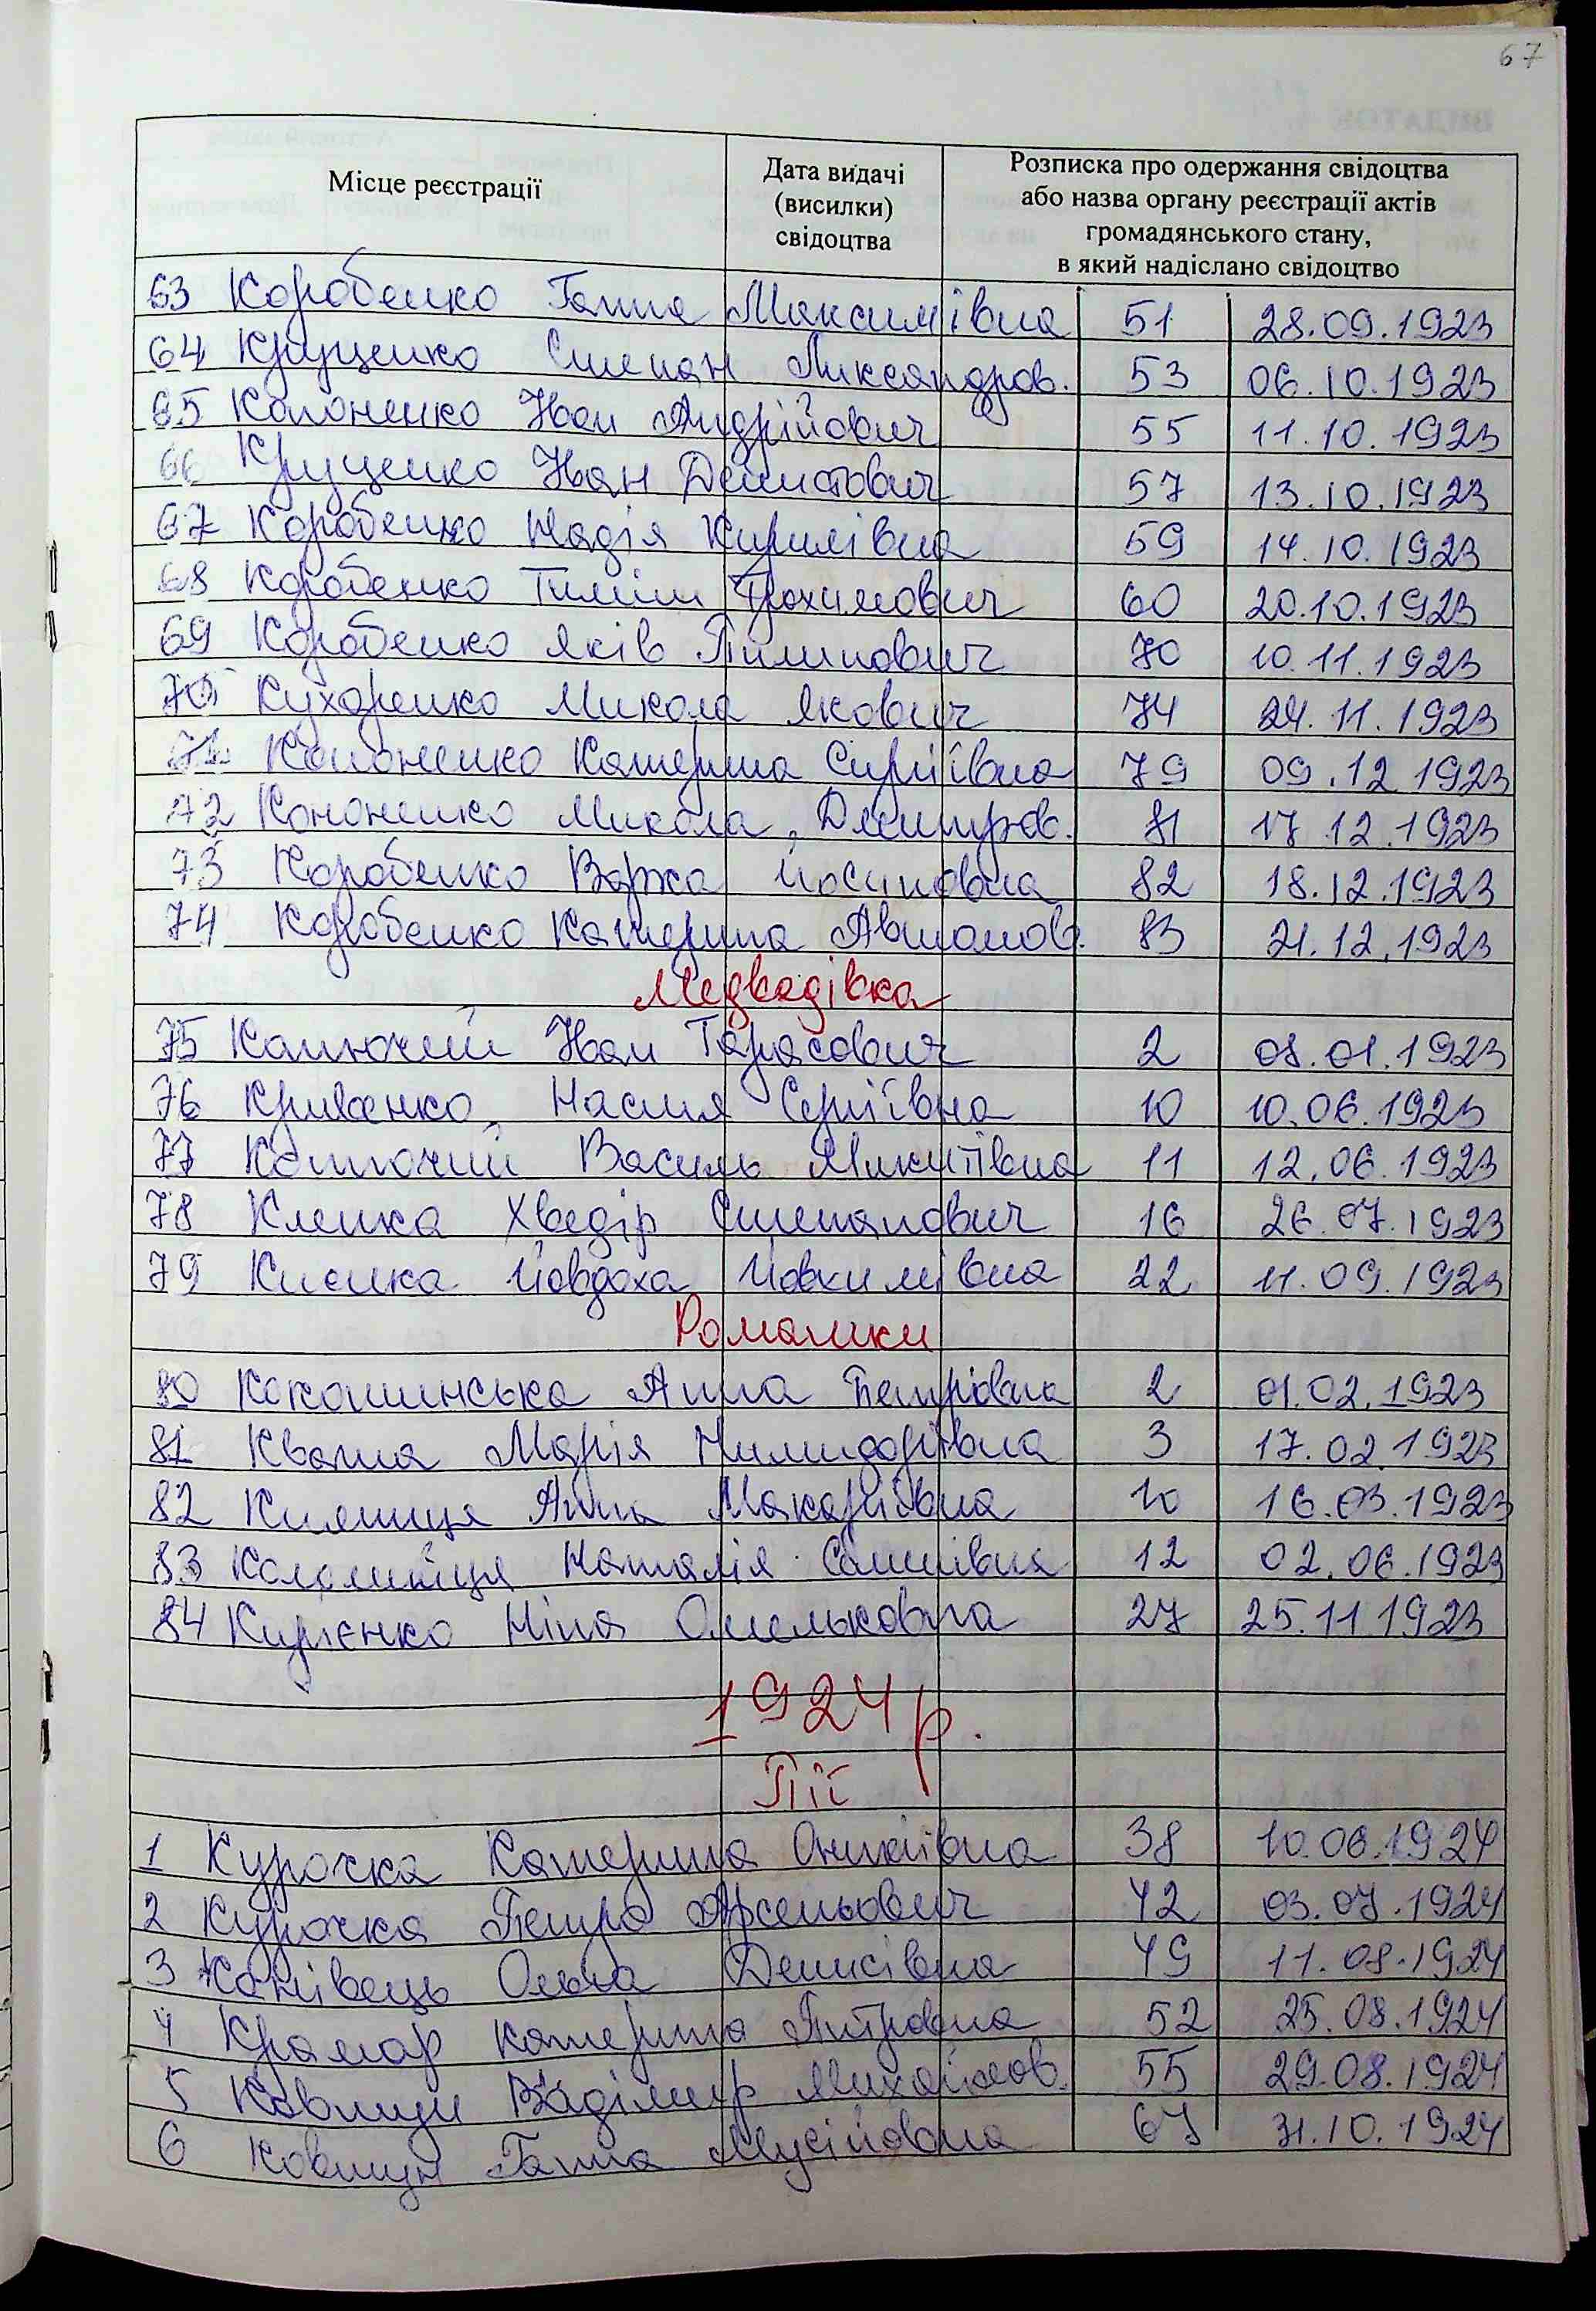 67
Місце реєстрації
Дата видачі
(висилки)
свідоцтва
Розписка про одержання свідоцтва
або назва органу реєстрації актів
громадянського стану,
в який надіслано свідоцтво
63 Коробенко Ганна Максимівна 51 28.09.1923
64 Круценко Степан Ликсандров. 53 06.10.1923
65 Кононенко Иван Андрійович 55 11.10.1923
66 Круценко Иван Денисович 57 13.10.1923
67 Коробенко Надія Кирилівна 59 14.10.1923
68 Коробенко Тиміш Трохимович 60 20.10.1923
69 Коробенко Яків Пилипович 70 10.11.1923
70 Кухаренко Микола Якович 74 24.11.1923
71 Кононенко Катерина Сиргіївна 79 09.12 1923
72 Кононенко Микола Дмитров. 81 17.12.1923
73 Коробенко Варка Йосиповна 82 18.12.1923
74 Коробенко Катерина Автоном. 83 21.12.1923
Медведівка
75 Каточий Иван Тарасович 2 08.01.1923
76 Кривенко Настя Сергіївна 10 10.06.1923
77 Каточий Василь Микитівна 11 12.06.1923
78 Клепка Хведір Степанович 16 26.07.1923
79 Києнка Йовдоха Йовкимівна 22 11.09.1923
Ромашки
80 Кокошинська Анна Петрівна 2 01.02.1923
81 Кваша Марія Ничипорівна 3 17.02.1923
82 Кияниця Анна Макаріївна 10 16.03.1923
83 Коломийця Наталія 12 02.06.1923
84 Кирієнко Ніна Омельковна 27 25.11 1923
1924 р.
Пії
1 Курочка Катерина Оникіївна 38 10.06.1924
2 Курочка Петро Арсеньович 42 03.07.1924
3 Канівець Ольга Денисівна 49 11.08.1924
4 Крамар Катерина Питровна 52 25.08.1924
5 Ковтун Владімир Михайлов. 55 29.08.1924
6 Ковтун Ганна Мусійовна 67 31.10.1924